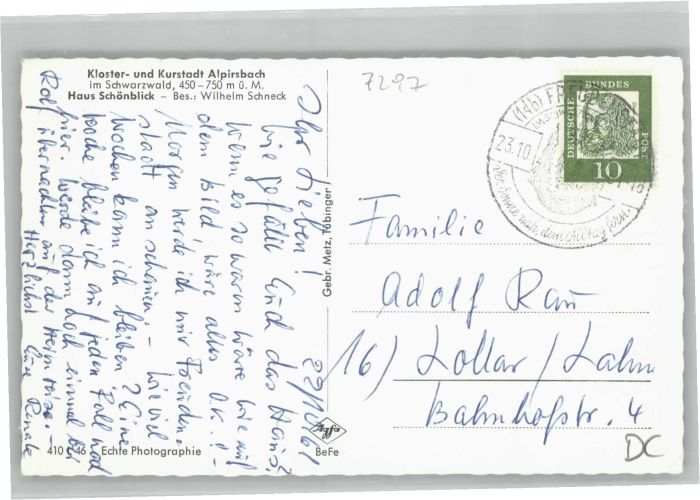 Kloster- und Kurstadt Alpirsbach
im Schwarzwald, 450–750 m ü. M.
Haus Schönblick – Bes.: Wilhelm Schneck
22/10/61
Ihr Lieben!
Wie gefällt Euch das Haus?
Wenn es so warm wäre wie auf
dem Bild, wäre alles O.K.! –
Morgen werde ich mir Freuden-
stadt anschauen. – Wieviel
Wochen kann ich bleiben? Eine
Woche bleibe ich auf jeden Fall noch
hier. Werde dann doch einmal bei
Rolf übernachten auf der Heimreise. –
Herzlichst Eure Renate
410 L 46 Echte Photographie
Agfa
BeFe
Gebr. Metz, Tübingen
7297
DEUTSCHE BUNDES POST
10
(14b)
23.10
Familie
Adolf Rau
16) Lollar/Lahn
Bahnhofstr. 4
DC